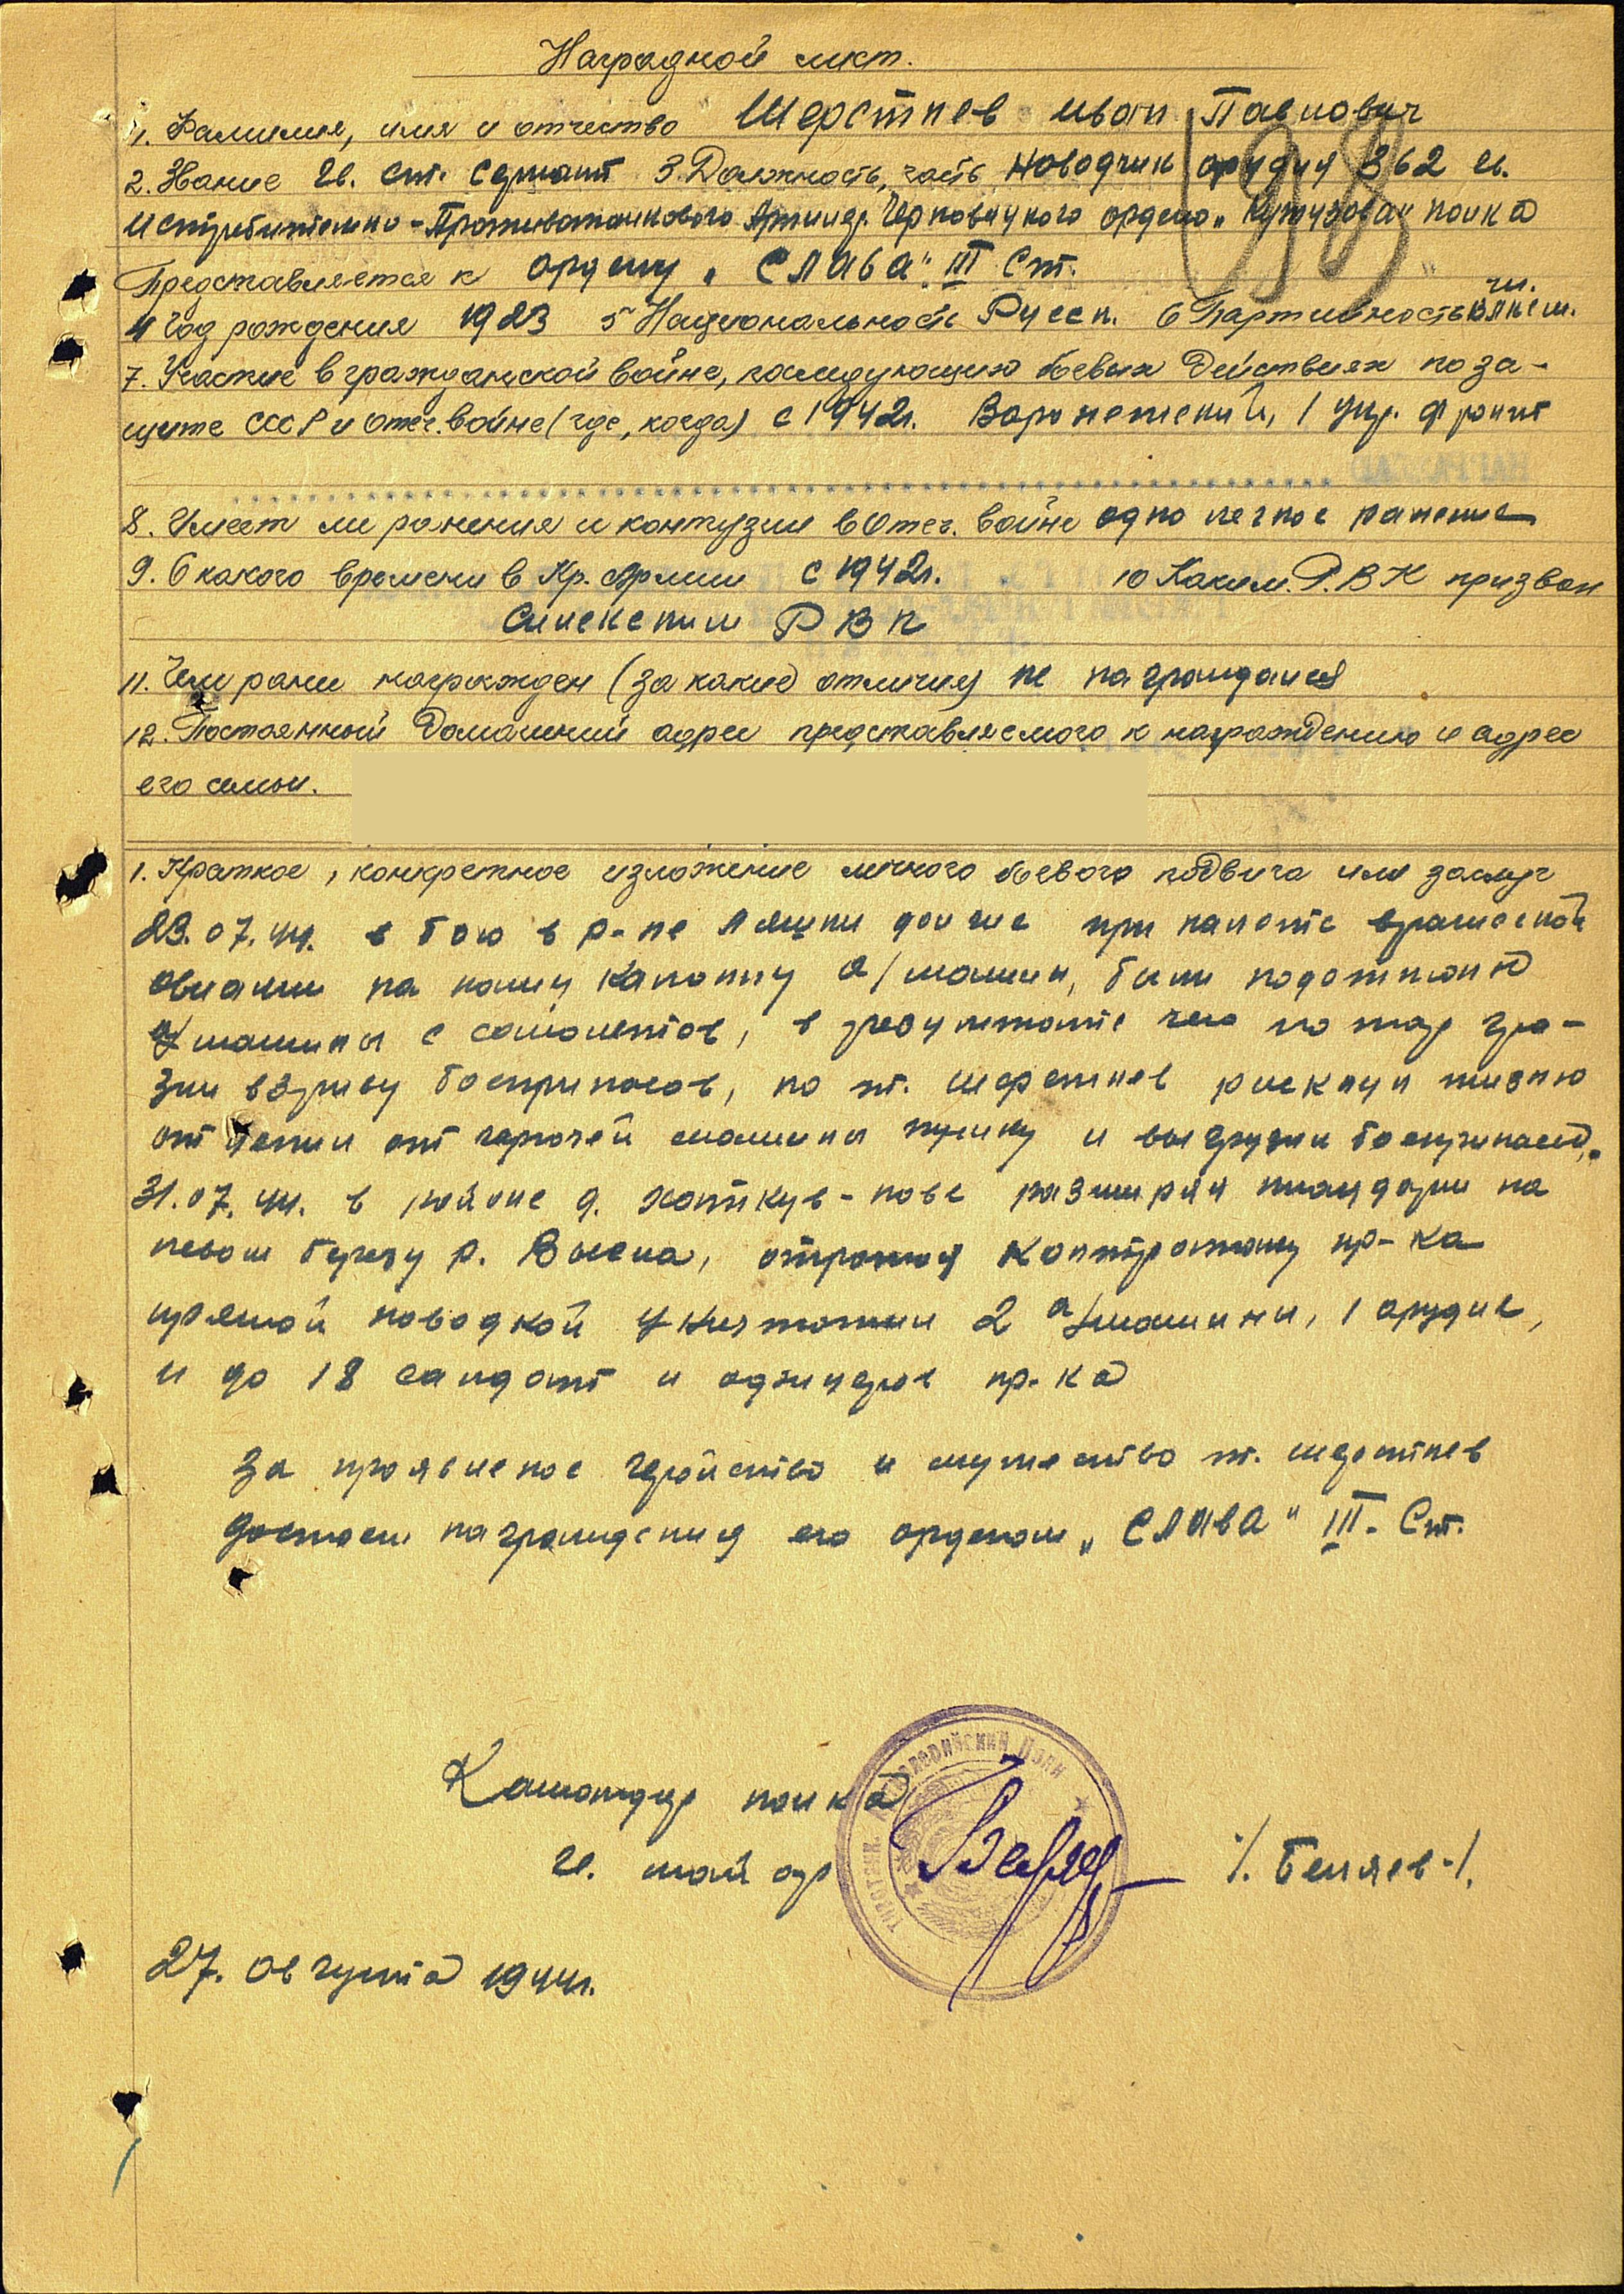 Наградной лист.
1. Фамилия, имя и отчество Шерстнев Иван Павлович
2. Звание Гв. ст. сержант 3. Должность, часть наводчик орудия 362 гв.
Истребительно-Противотанкового Артиллер. Черновицкого ордена „Кутузова" полка
Представляется к ордену „СЛАВА" III Ст.
4 Год рождения 1923 5 Национальность Русск. 6 Партийность чл. ВЛКСМ.
7. Участие в гражданской войне, последующих боевых действиях по за-
щите СССР и отеч. войне (где, когда) с 1942г. Воронежский, 1 Укр. фронт
8. Имеет ли ранения и контузии в Отеч. войне одно легкое ранение
9. С какого времени в Кр. Армии с 1942г. 10 Каким Р.В.К призван
РВК
11. Чем ранее награжден (за какие отличия) не награждался
12. Постоянный домашний адрес представляемого к награждению и адрес
его семьи.
1. Краткое, конкретное изложение личного боевого подвига или заслуг
23.07.44г. в бою в р-не при налете вражеской
авиации на нашу капонну а/машин, были подожжены
машины с самолетов, в результате чего пожар гро-
зил взрыву боеприпасов, но т. Шерстнев рискнул жизню
отцепил от горючей машины пушку и выгрузил боеприпасы.
31.07.44г. в районе д. расширяя плацдарм на
левом берегу р. Висла, отражая контратаку пр-ка
прямой наводкой уничтожил 2 а/машины, 1 орудие,
и до 18 салдат и офицеров пр-ка
За проявленое геройство и мужество т. Шерстнев
достоен награждения его орденом „СЛАВА" III-Ст.
Командир полка
Гв. майор /. Беляев./.
27. августа 1944г.